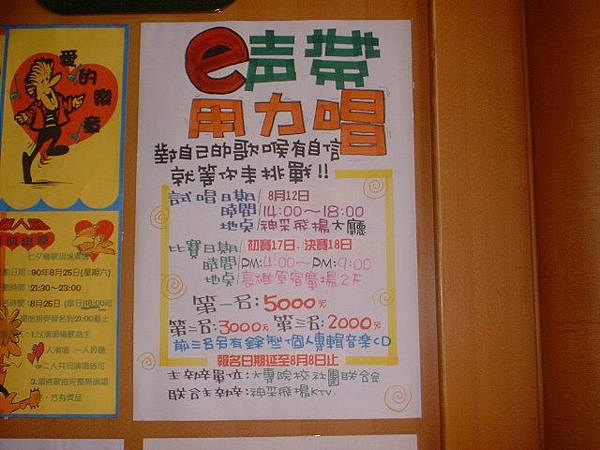 愛的樂章
七夕情歌
90年8月25日(星期六)
21:30~23:00
8月25日
e声帶
用力唱
對自己的歌喉有自信
就等你來挑戰!!
試唱日期/8月12日
時間/14:00~18:00
地点/神采飛揚大廳
比賽日期/初賽17日、決賽18日
時間/PM:4:00~PM:9:00
地点/高雄原宿廣場2F.
第一名:5000元
第二名:3000元 第三名:2000元
前三名另有錄製個人專輯音樂CD
報名日期延至8月8日止
主辦單位:大專院校社團联合会
联合主辦:神采飛揚KTV.